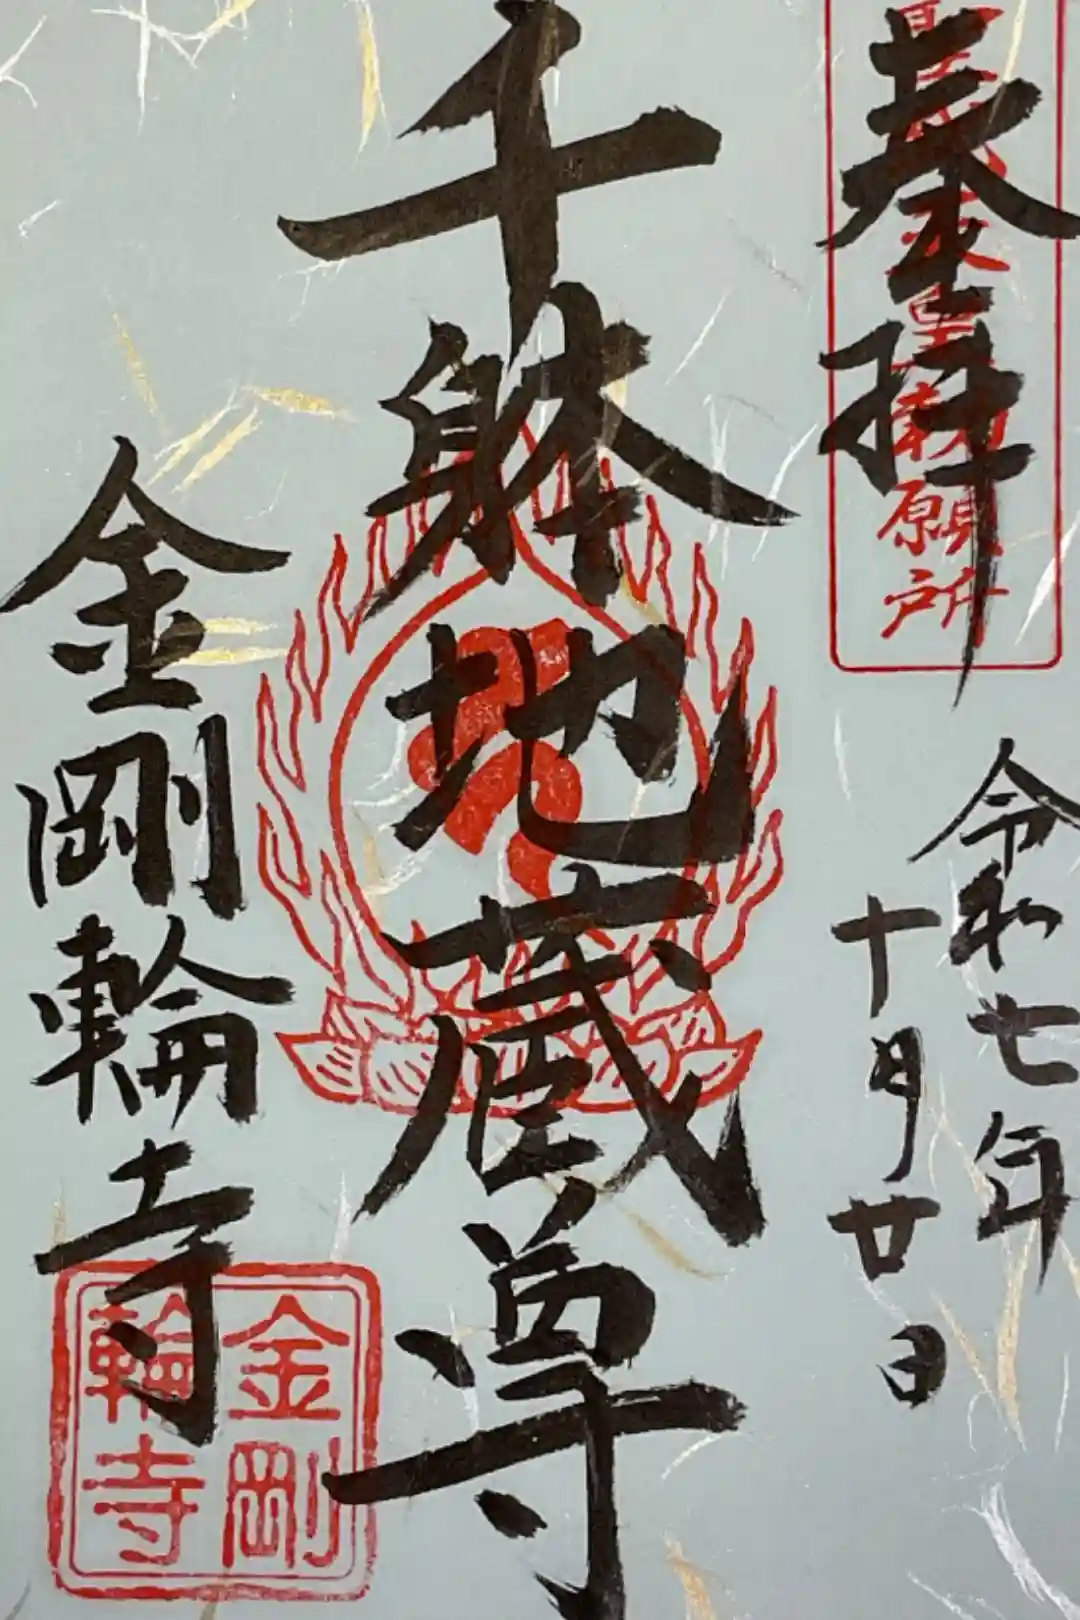 奉拝
聖武天皇勅願所
令和七年
十月廿日
千躰地蔵尊
金剛輪寺
金剛
輪寺